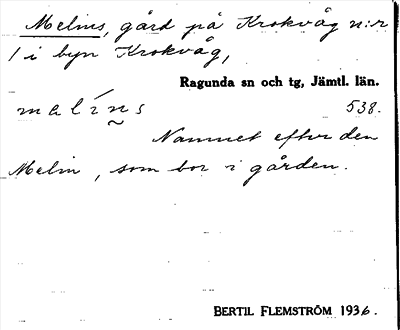 Melins, gård på Krokvåg n:r
1 i byn Krokvåg,
Ragunda sn och tg, Jämtl. län.
melíns 538.
Namnet efter den
Melin, som bor i gården.
BERTIL FLEMSTRÖM 1936.